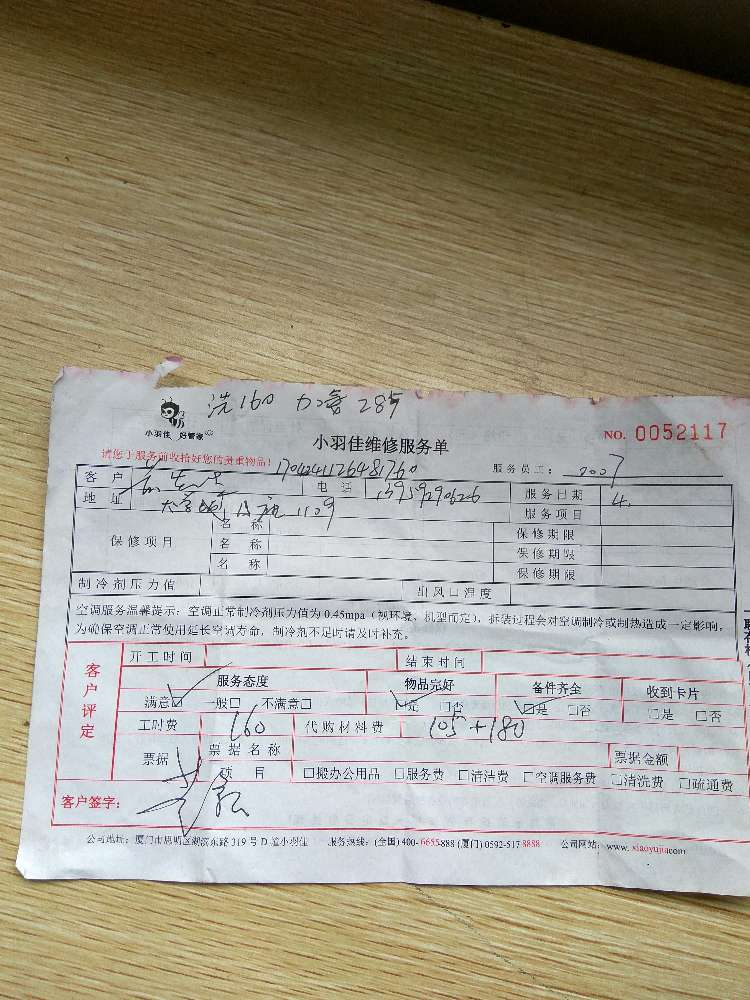 洗160 加毒 285
小羽佳 好管家
小羽佳维修服务单
NO. 0052117
请您于服务前收拾好您的贵重物品！
服务员工：2007
客户
电话 13959290626
服务日期 4.
地址 1109
服务项目
保修项目
名称
保修期限
名称
保修期限
名称
保修期限
制冷剂压力值
出风口温度
空调服务温馨提示：空调正常制冷剂压力值为 0.45mpa（视环境、机型而定），拆装过程会对空调制冷或制热造成一定影响，
为确保空调正常使用延长空调寿命，制冷剂不足时请及时补充。
客户评定
开工时间
结束时间
服务态度 物品完好 备件齐全 收到卡片
满意☑ 一般□ 不满意□ ☑是 □否 ☑是 □否 □是 □否
工时费 160 代购材料费 105+180
票据 票据名称 票据金额
项目 □搬办公用品 □服务费 □清洁费 □空调服务费 □清洗费 □疏通费
客户签字：
公司地址：厦门市思明区湖滨东路 319 号 D 道小羽佳 服务热线：(全国) 400-6655888 (厦门) 0592-517 8888 公司网站：www.xiaoyujia.com